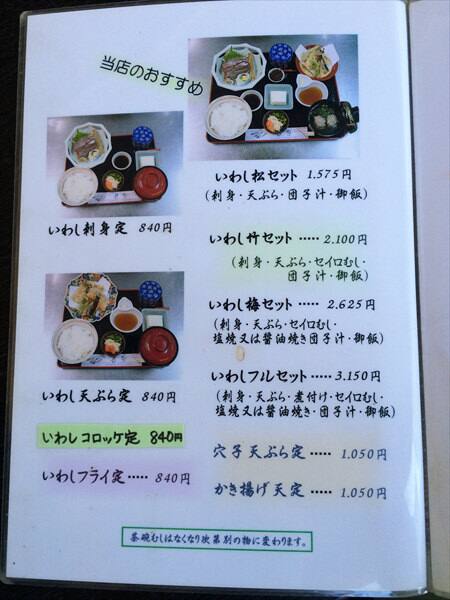 当店のおすすめ
いわし刺身定 840円
いわし天ぷら定 840円
いわしコロッケ定 840円
いわしフライ定 ····· 840円
いわし松セット 1.575円
(刺身・天ぷら・団子汁・御飯)
いわし竹セット ····· 2.100円
(刺身・天ぷら・セイロむし・
団子汁・御飯)
いわし梅セット ····· 2.625円
(刺身・天ぷら・セイロむし・
塩焼又は醤油焼き団子汁・御飯)
いわしフルセット ···· 3.150円
(刺身・天ぷら・煮付け・セイロむし・
塩焼又は醤油焼き・団子汁・御飯)
穴子天ぷら定 ····· 1.050円
かき揚げ天定 ····· 1.050円
茶碗むしはなくなり次第別の物に変わります。